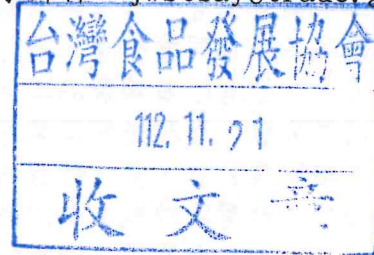 台灣食品發展協會
112. 11. 21
收文章